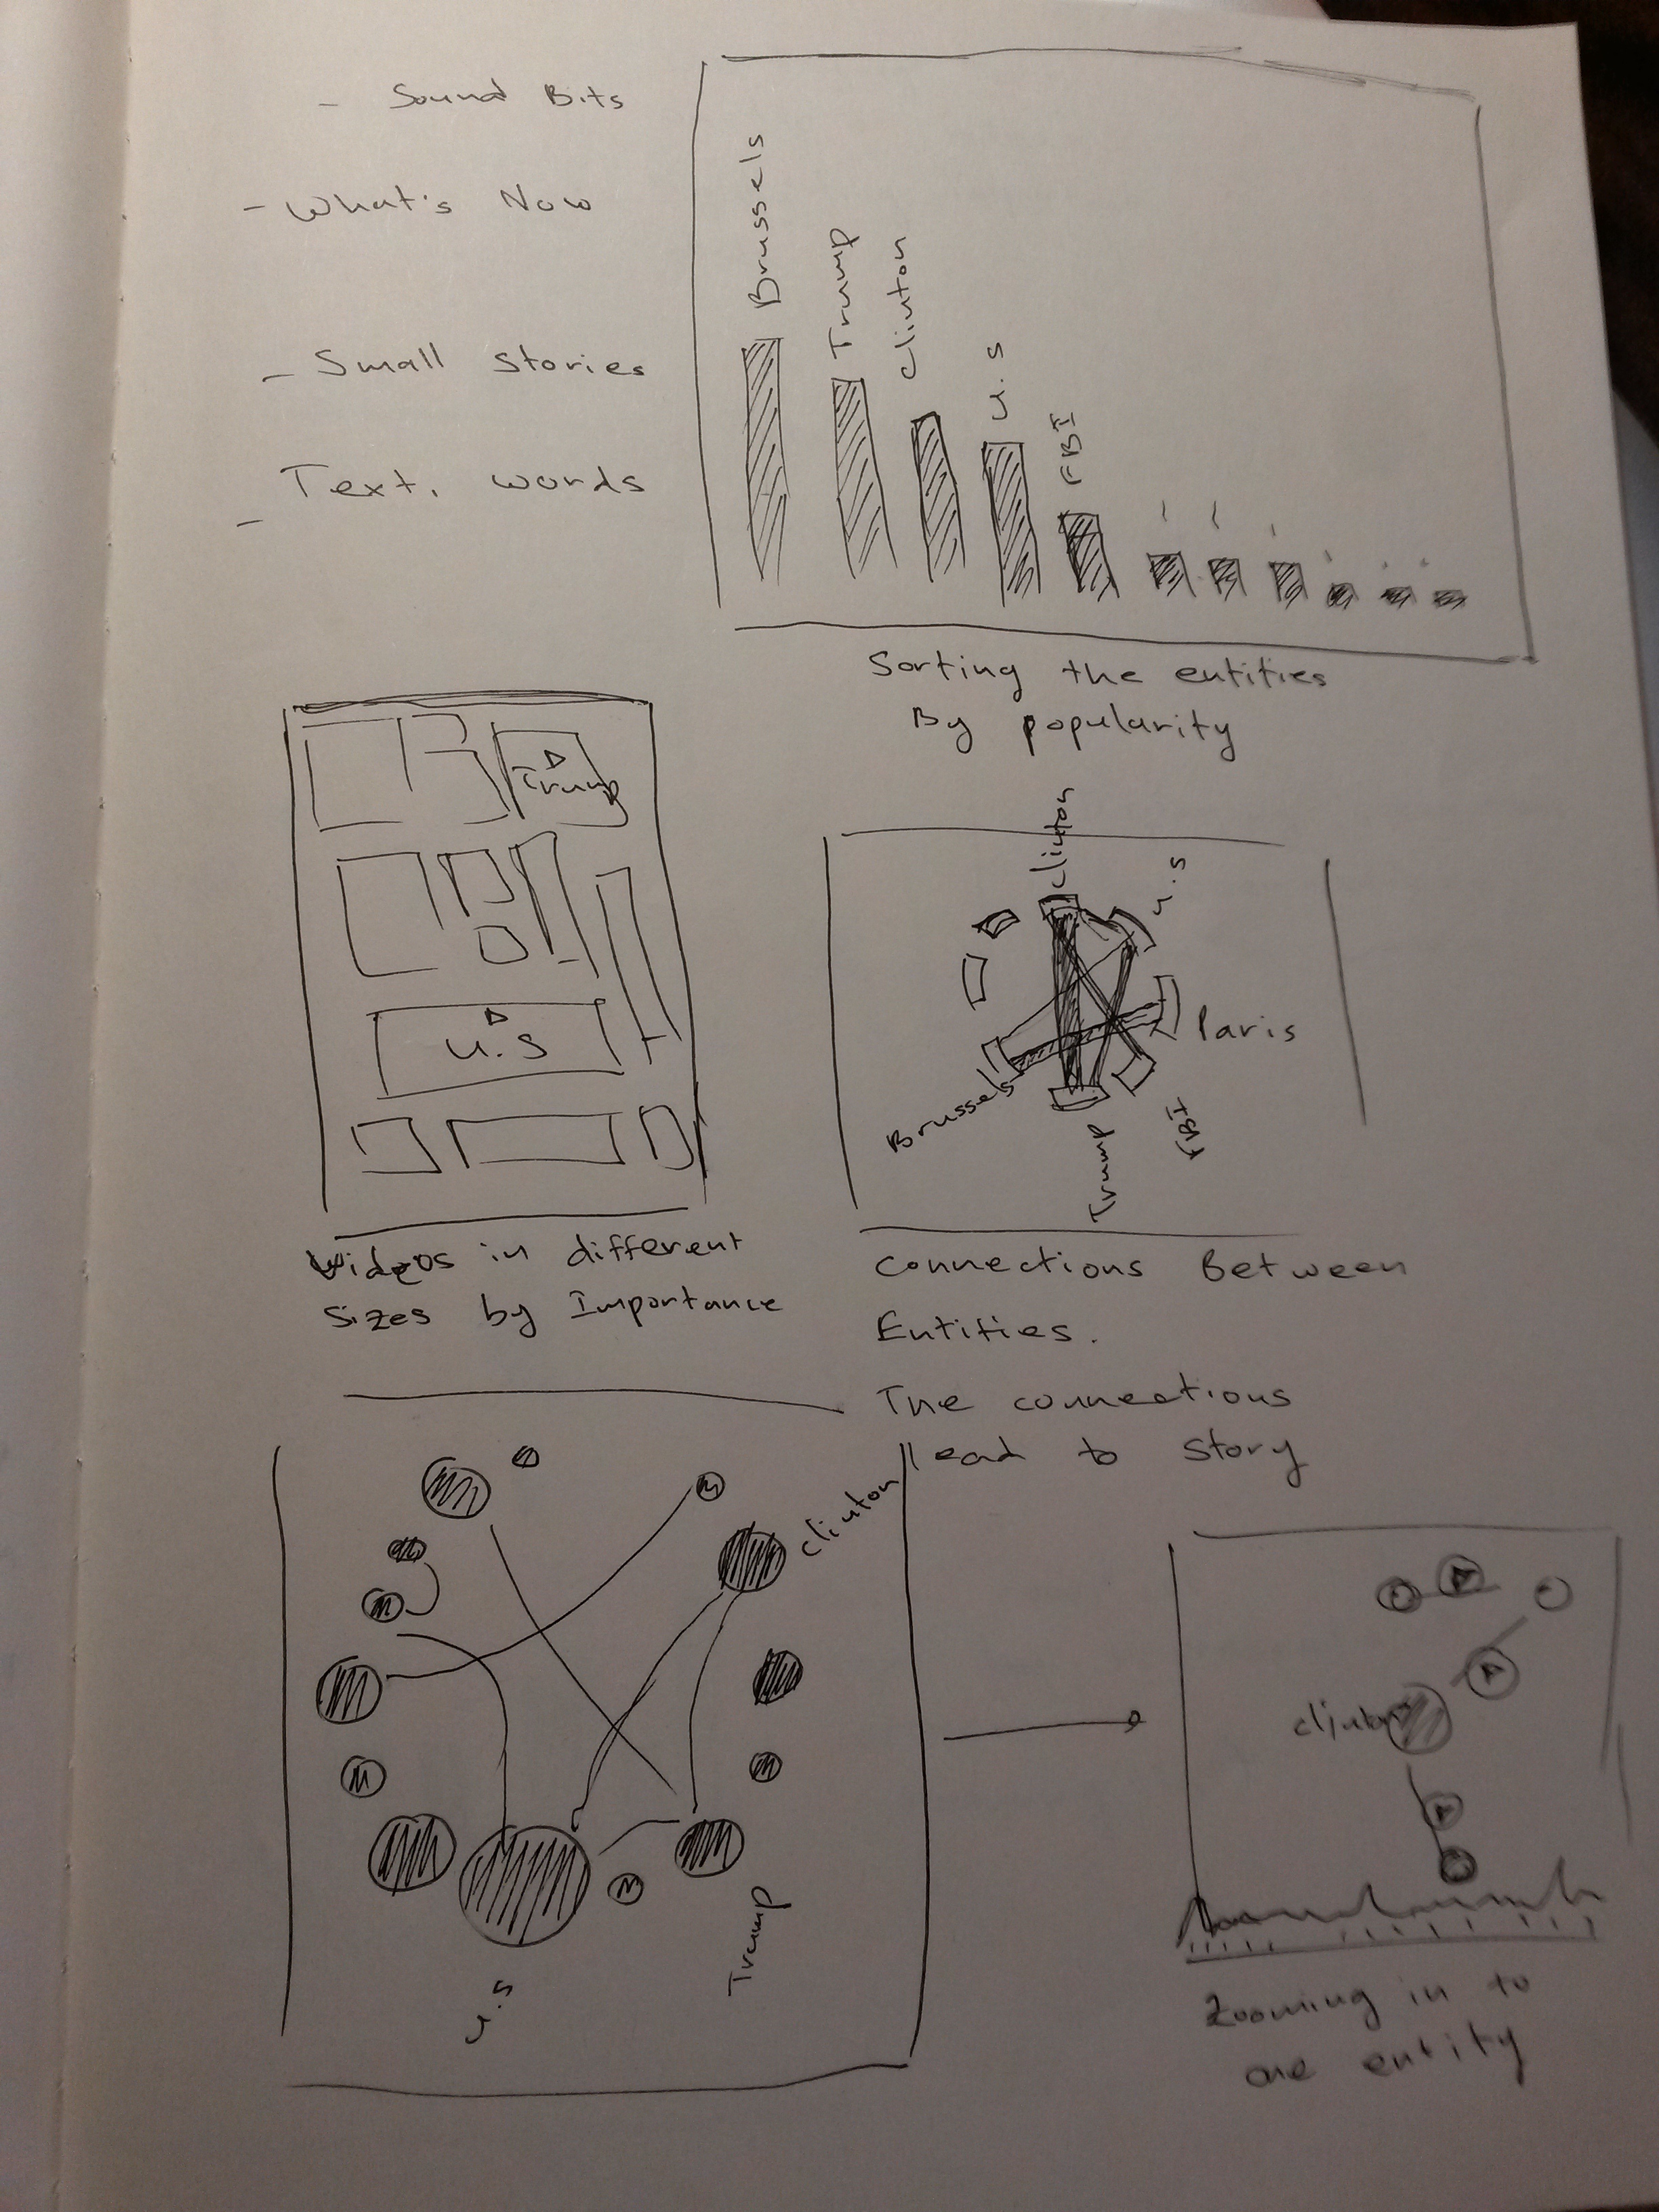 - Sound Bits
- What's Now
- Small stories
- Text, words
Brussels
Trump
Clinton
U.S
FBI
Sorting the entities
By popularity
Trump
U.S
Videos in different
Sizes by Importance
Clinton
U.S
Paris
FBI
Trump
Brussels
Connections Between
Entities.
The connections
lead to story
Clinton
Trump
U.S
Clinton
Zooming in to
one entity